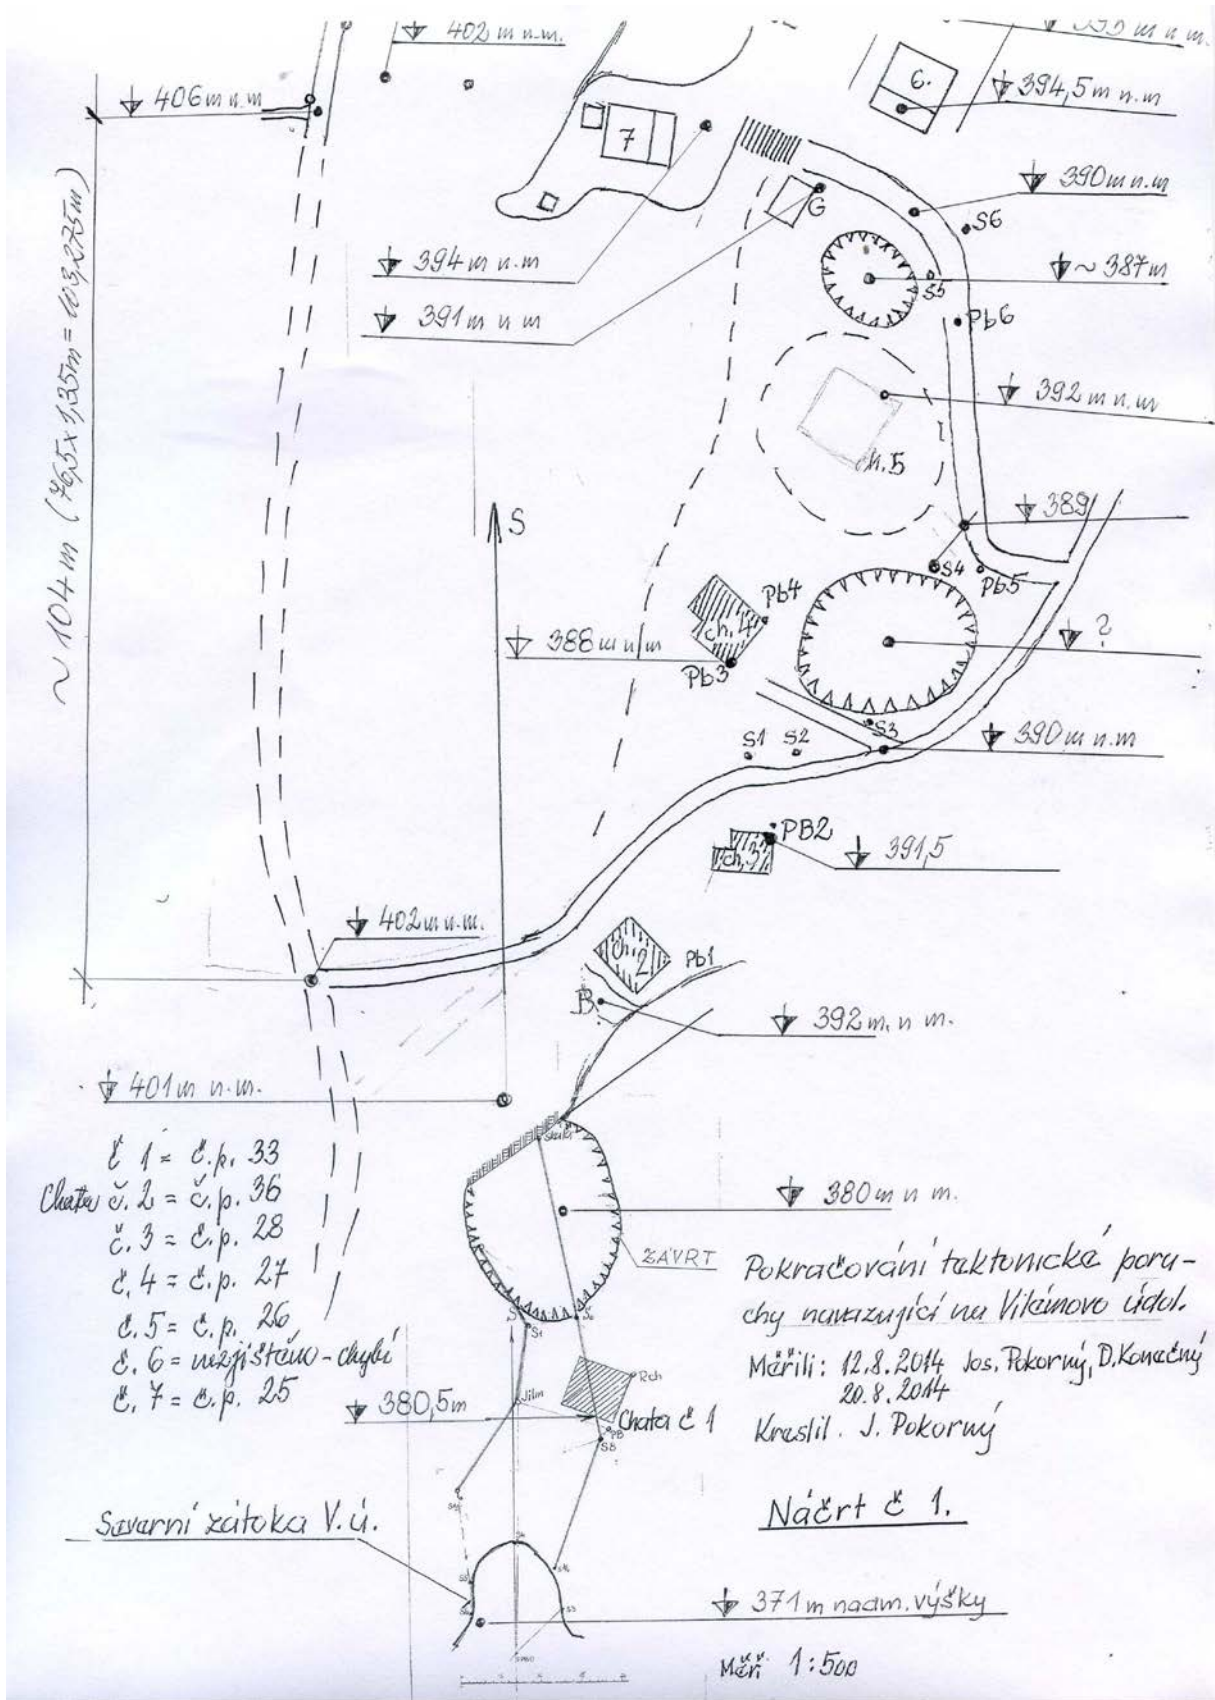 402 m n.m.
395 m n.m.
406 m n.m
6.
394,5 m n.m
7
390 m n.m
G
S6
394 m n.m
~ 387 m
S5
391 m n m
Pb6
~ 104 m (76,5 x 1,35m = 103,275m)
392 m n.m
ch.5
S
389
S4
Pb5
Pb4
ch.4
388 m n/m
?
Pb3
S3
S1
S2
390 m n.m
PB2
ch.3
391,5
402 m n.m.
ch.2
Pb1
B
392 m. n m.
401 m n.m.
skála
č 1 = č.p. 33
Chata č. 2 = č.p. 36
č. 3 = č.p. 28
č. 4 = č.p. 27
č. 5 = č.p. 26
č. 6 = nezjištěno - chybí
č. 7 = č.p. 25
380 m n m.
ZÁVRT
Pokračování tektonické poru-
chy navazující na Vilémovo údol.
Měřili: 12.8.2014 Jos. Pokorný, D.Konečný
20.8.2014
Kreslil. J. Pokorný
S1
Jilm
Rch
380,5m
Chata č 1
PB
S8
Náčrt č 1.
Severní zátoka V.ú.
371 m nadm. výšky
Měř. 1:500